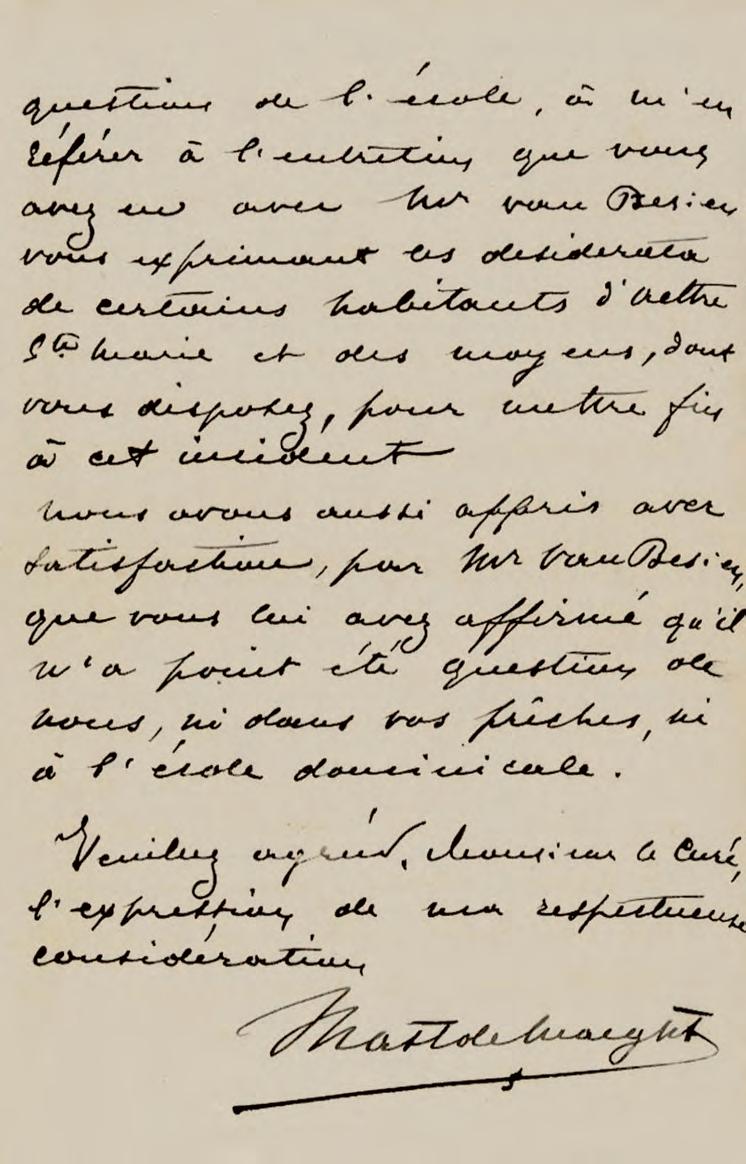 question de l'école, à m'en
référer à l'entretien que vous
avez eu avec Mr van Besien
vous exprimant les desiderata
de certains habitants d'Aeltre
Ste Marie et des moyens, dont
vous disposez, pour mettre fin
à cet incident
nous avons aussi appris avec
satisfaction, par Mr Van Besien,
que vous lui avez affirmé qu'il
n'a point été question de
nous, ni dans vos prêches, ni
à l'école dominicale.
Veuillez agréer, Monsieur le Curé,
l'expression de ma respectueuse
considération
Mast de Maeght